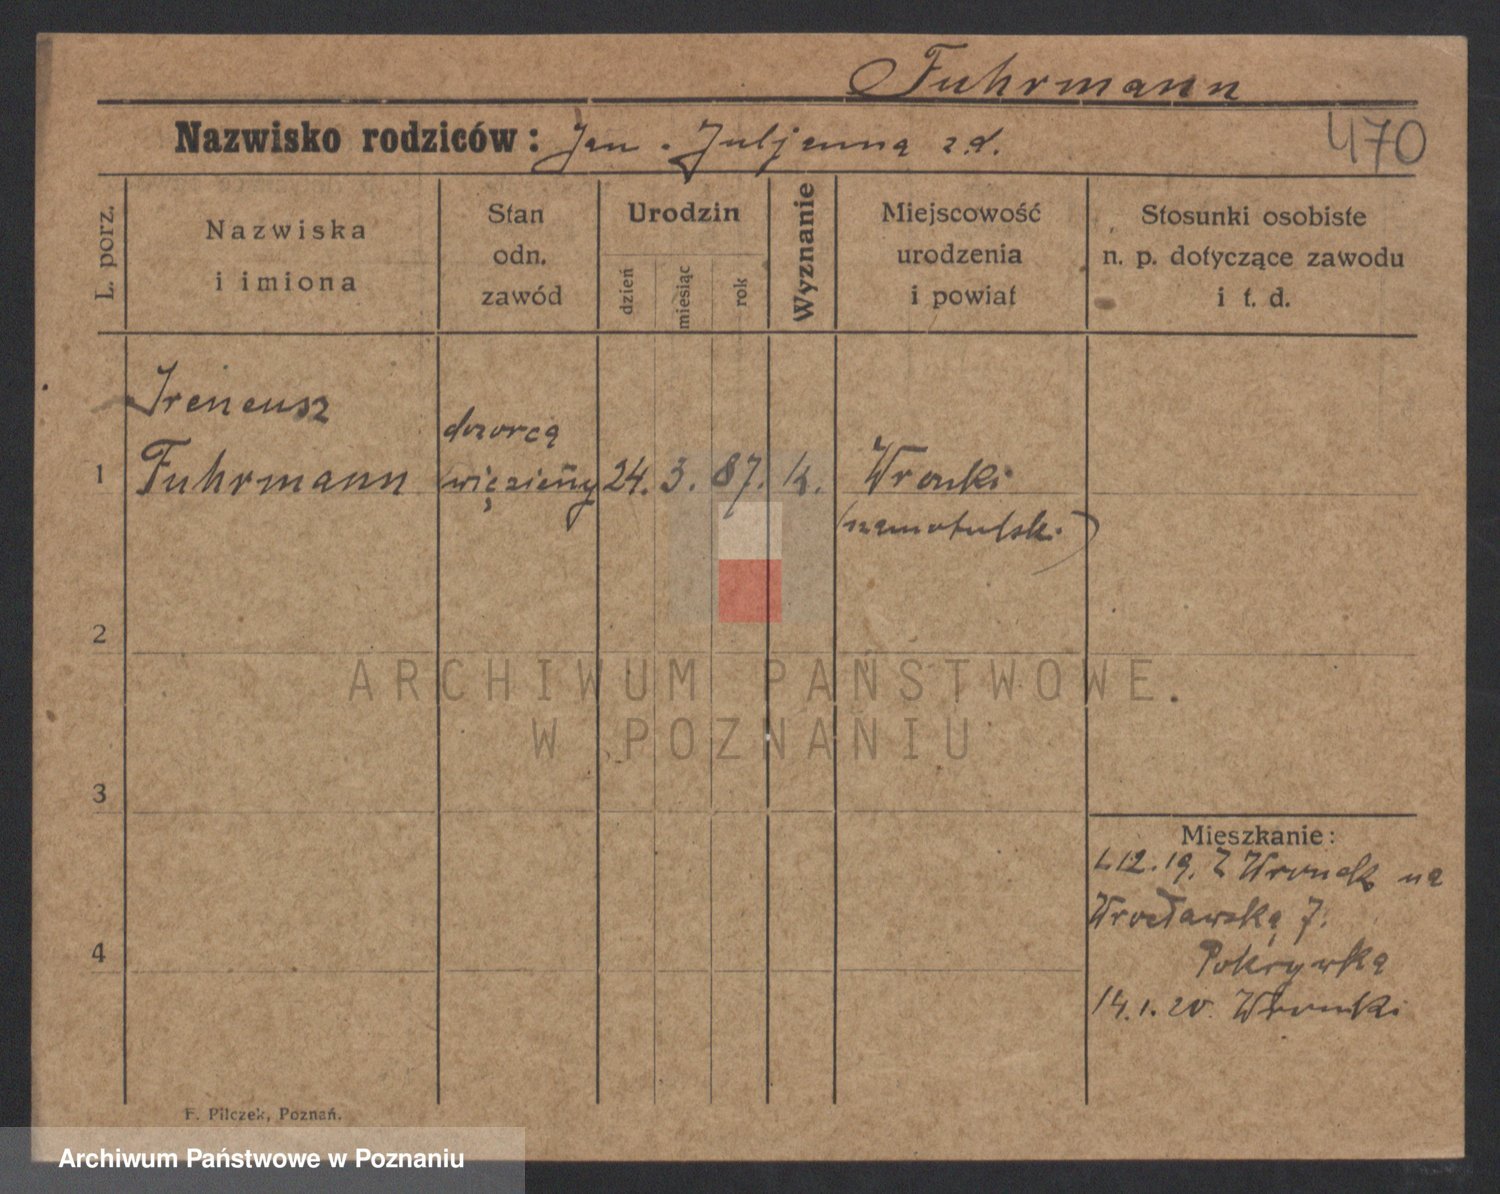 Fuhrmann
Nazwisko rodziców: Jan. Juljanna z.d.
470
L. porz.
Nazwiska
i imiona
Stan
odn.
zawód
Urodzin
dzień
miesiąc
rok
Wyznanie
Miejscowość
urodzenia
i powiat
Stosunki osobiste
n. p. dotyczące zawodu
i t. d.
Ireneusz
dozorca
1 Fuhrmann więzienny 24. 3. 87. k. Wronki
(szamotulski)
2
ARCHIWUM PAŃSTWOWE
W POZNANIU
3
Mieszkanie:
1.12.19. Z Wronek na
Wrocławską 7.
4
Pokrywka
14.1.20. Wronki
F. Pilczek, Poznań.
Archiwum Państwowe w Poznaniu